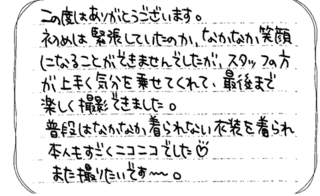 この度はありがとうございます。
初めは緊張していたのか、なかなか笑顔
になることができませんでしたが、スタッフの方
が上手く気分を乗せてくれて、最後まで
楽しく撮影できました。
普段はなかなか着られない衣装を着られ
本人もすごくニコニコでした☺
また撮りたいです〜〜。